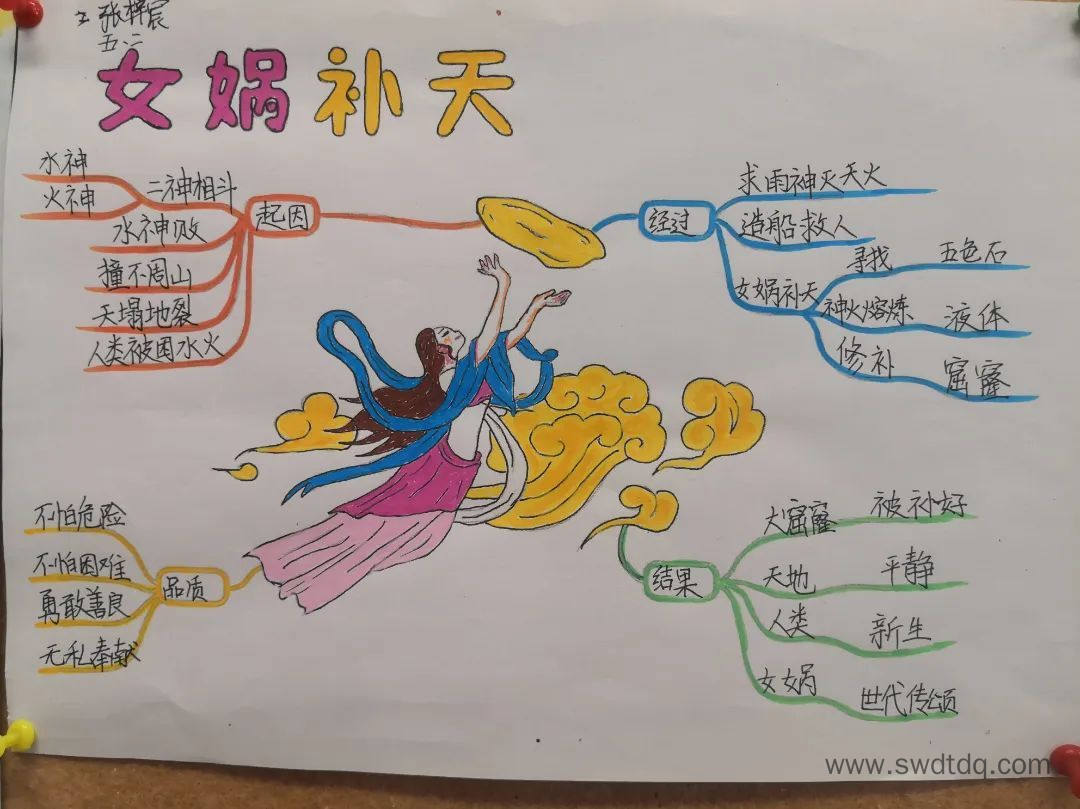 张梓宸
五.二
女娲补天
起因
二神相斗
水神
火神
水神败
撞不周山
天塌地裂
人类被困水火
经过
求雨神灭天火
造船救人
女娲补天
寻找 五色石
神火熔炼 液体
修补 窟窿
品质
不怕危险
不怕困难
勇敢善良
无私奉献
结果
大窟窿 被补好
天地 平静
人类 新生
女娲 世代传颂
www.swdtdq.com